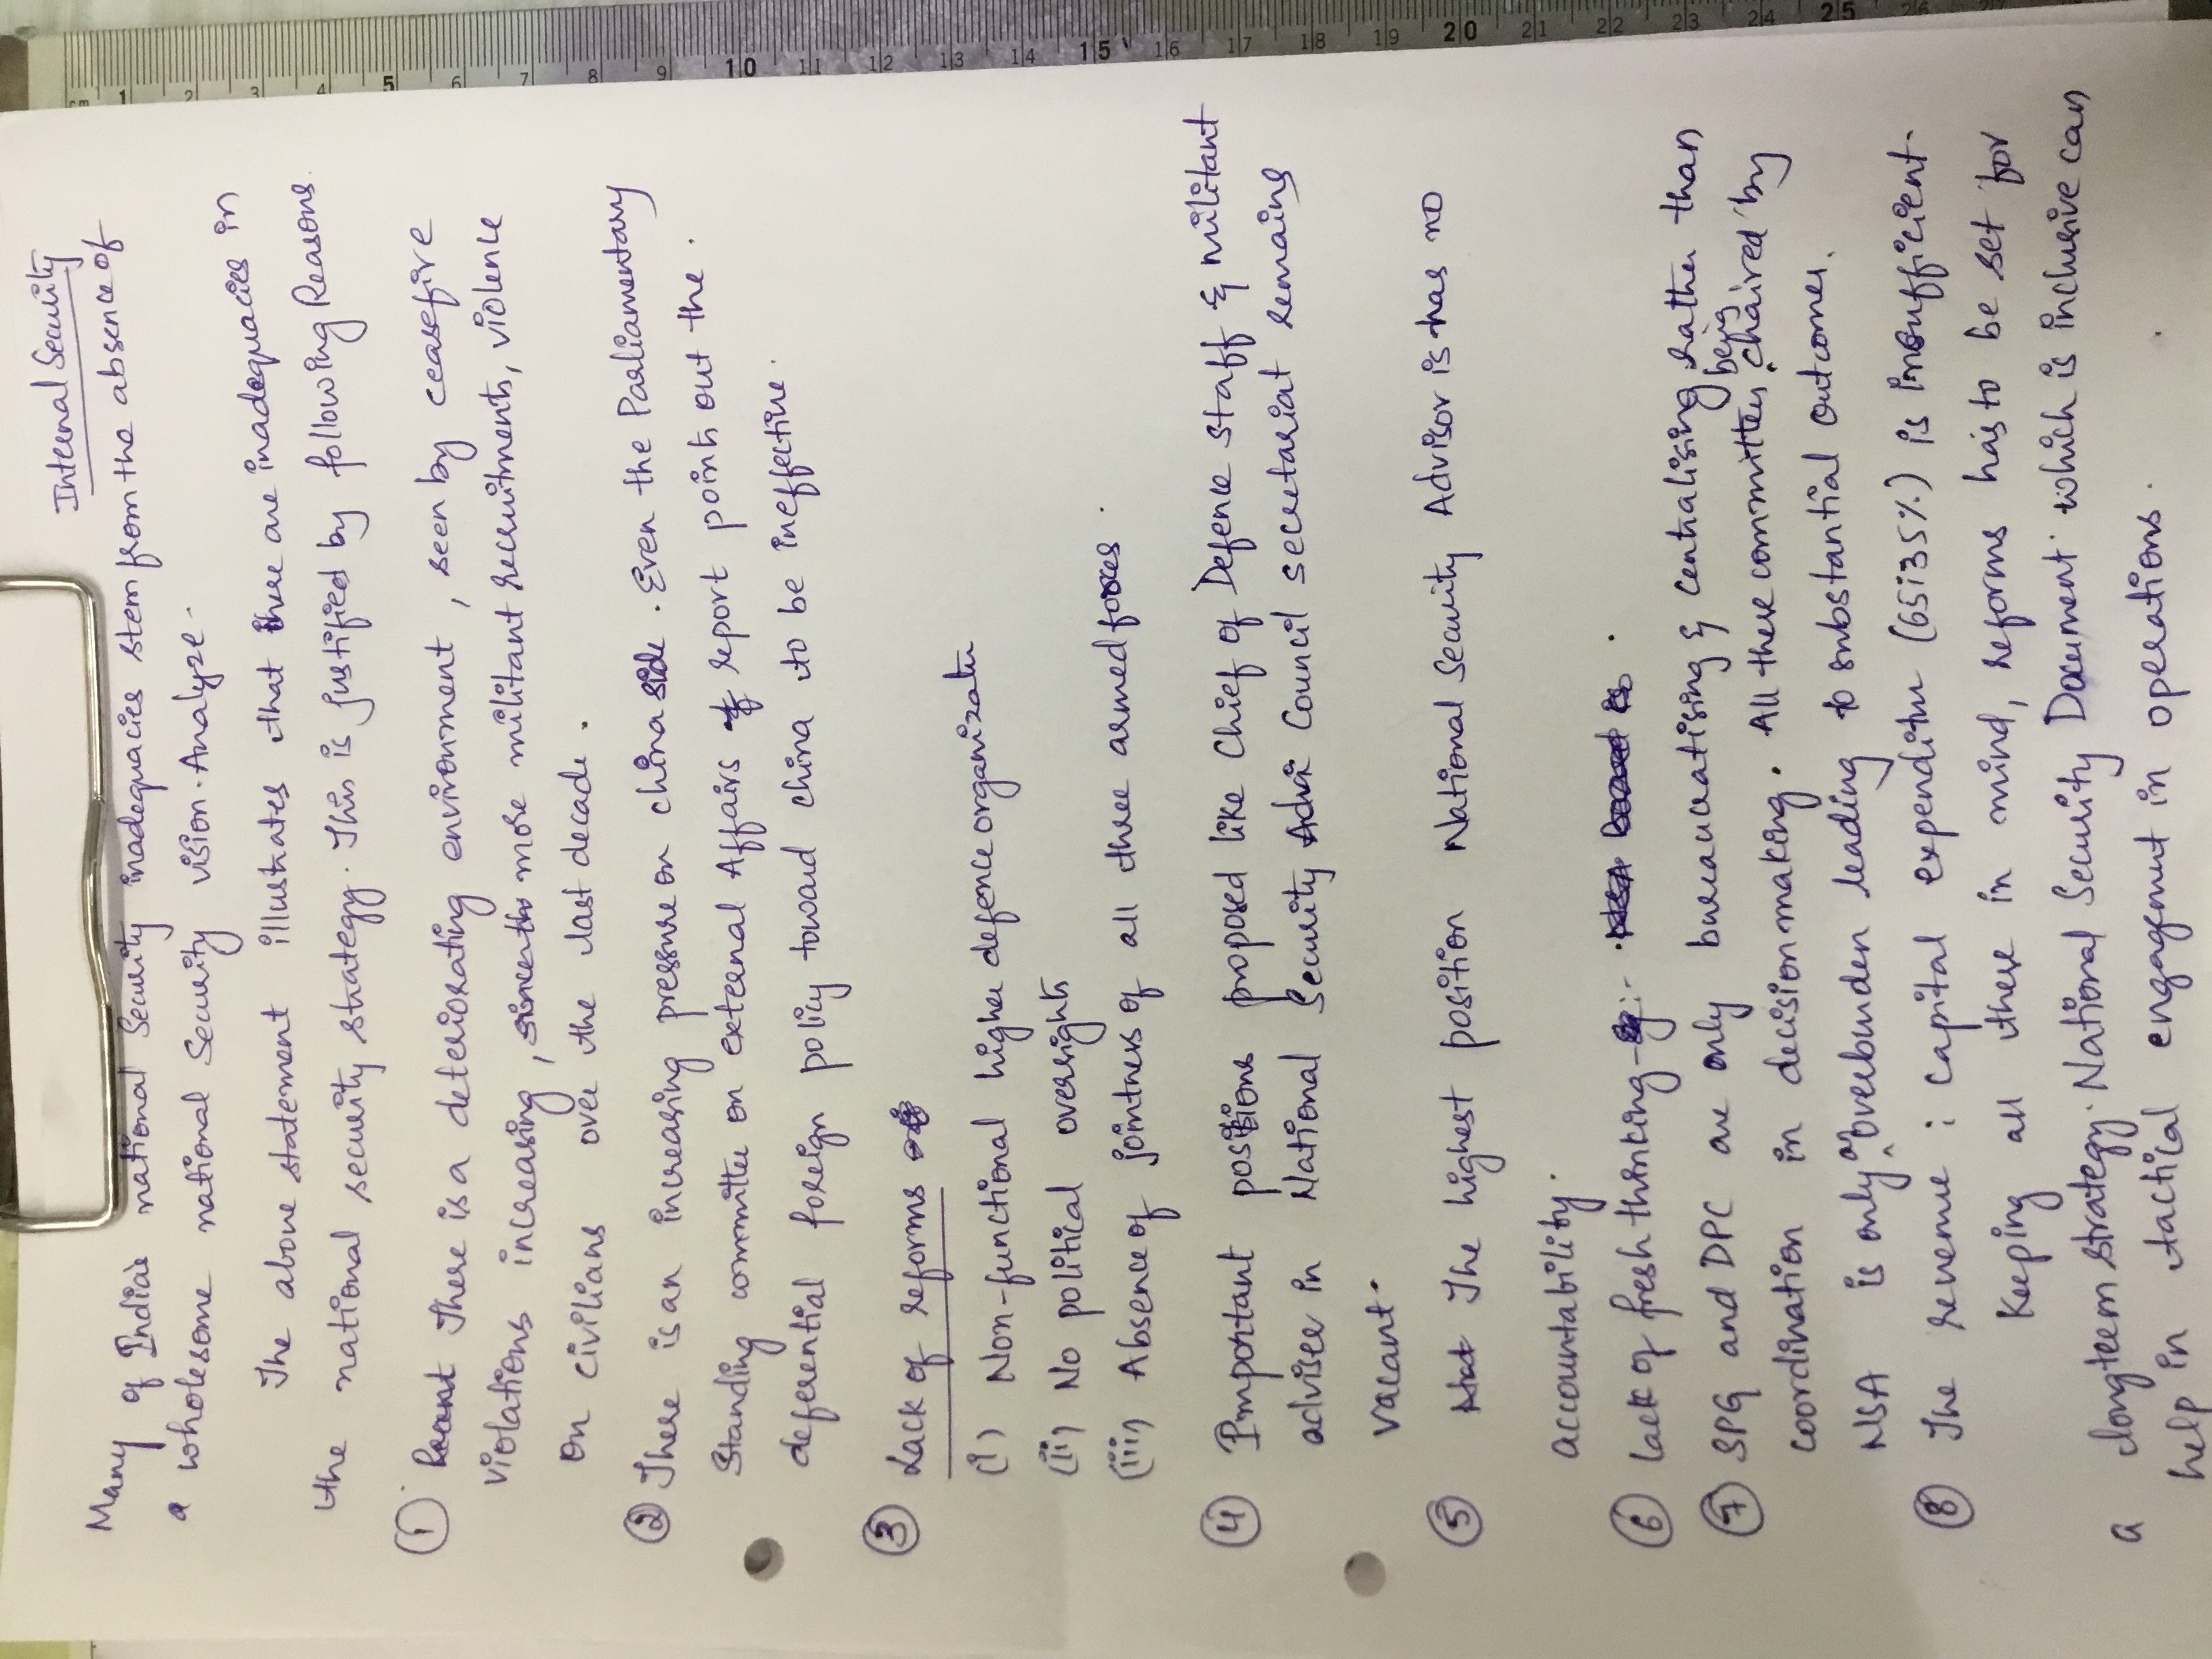 Internal Security
Many of Indias national Security inadequacies stem from the absence of
a wholesome national Security vision. Analyze.
The above statement illustrates that there are inadequacies in
the national security strategy. This is justified by following Reasons.
① There is a deteriorating environment, seen by ceasefire
violations increasing, more militant recruitments, violence
on civilians over the last decade.
② There is an increasing pressure on china side. Even the Parliamentary
Standing committee on external Affairs report points out the.
deferential foreign policy toward china to be ineffective.
③ Lack of reforms
(i) Non-functional higher defence organizatn
(ii) No political oversight
(iii) Absence of jointness of all three armed forces.
④ Important positions proposed like Chief of Defence staff & militant
adviser in National Security Council secretariat remains
vacant.
⑤ The highest position National Security Advisor is has no
accountability.
⑥ lack of fresh thinking-
⑦ SPG and DPC are only bureaucratising & centralising rather than
coordination in decision making. All these committees being chaired by
NSA is only an overburden leading to substantial outcomes.
⑧ The revenue : capital expenditure (65:35%) is insufficient.
Keeping all these in mind, reforms has to be set for
a longterm strategy. National Security Document which is inclusive can
help in tactical engagement in operations.
cm 1 2 3 4 5 6 7 8 9 10 11 12 13 14 15 16 17 18 19 20 21 22 23 24 25 26